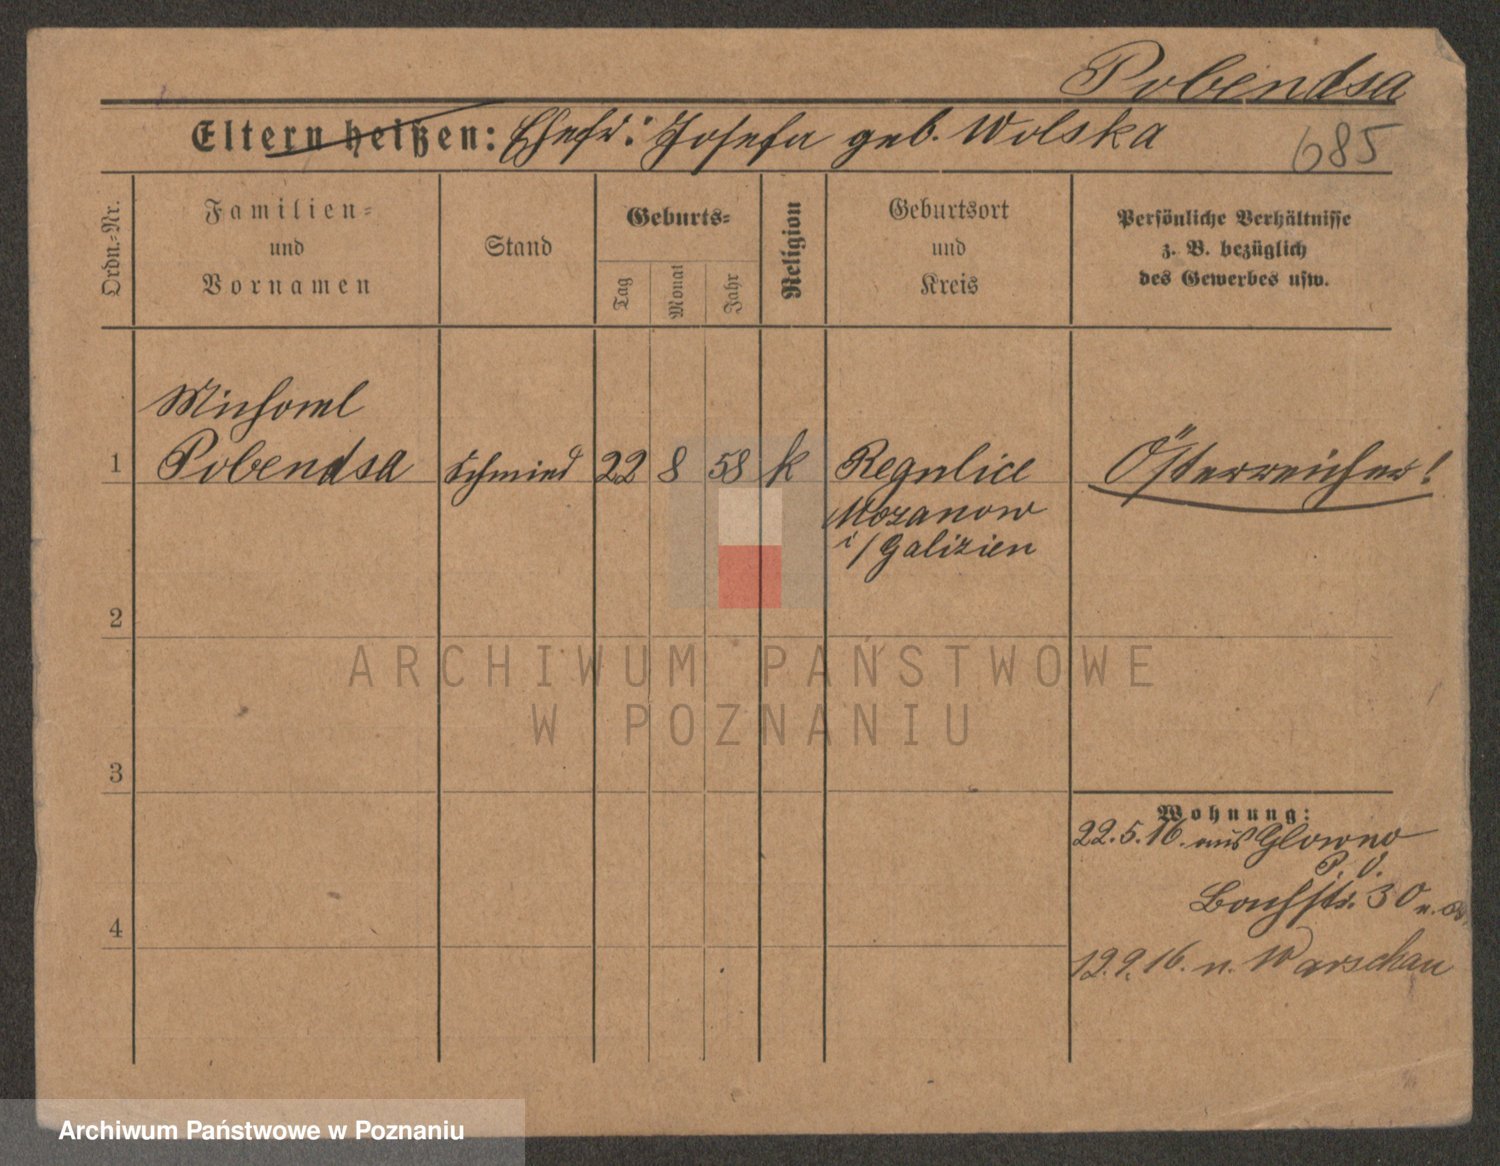 Pobendsa
Eltern heißen: Ehefr: Josefa geb. Wolska
685
Ordn.-Nr.
Familien-
und
Vornamen
Stand
Geburts-
Tag
Monat
Jahr
Religion
Geburtsort
und
Kreis
Persönliche Verhältnisse
z. B. bezüglich
des Gewerbes usw.
Michael
1 Pobendsa Schmied 22 8 58 k Regulice Österreicher!
i/Galizien
2
ARCHIWUM PAŃSTWOWE
W POZNANIU
3
Wohnung:
22.5.16. aus Glowno
Bachstr. 30
4
12.9.16. n. Warschau
Archiwum Państwowe w Poznaniu